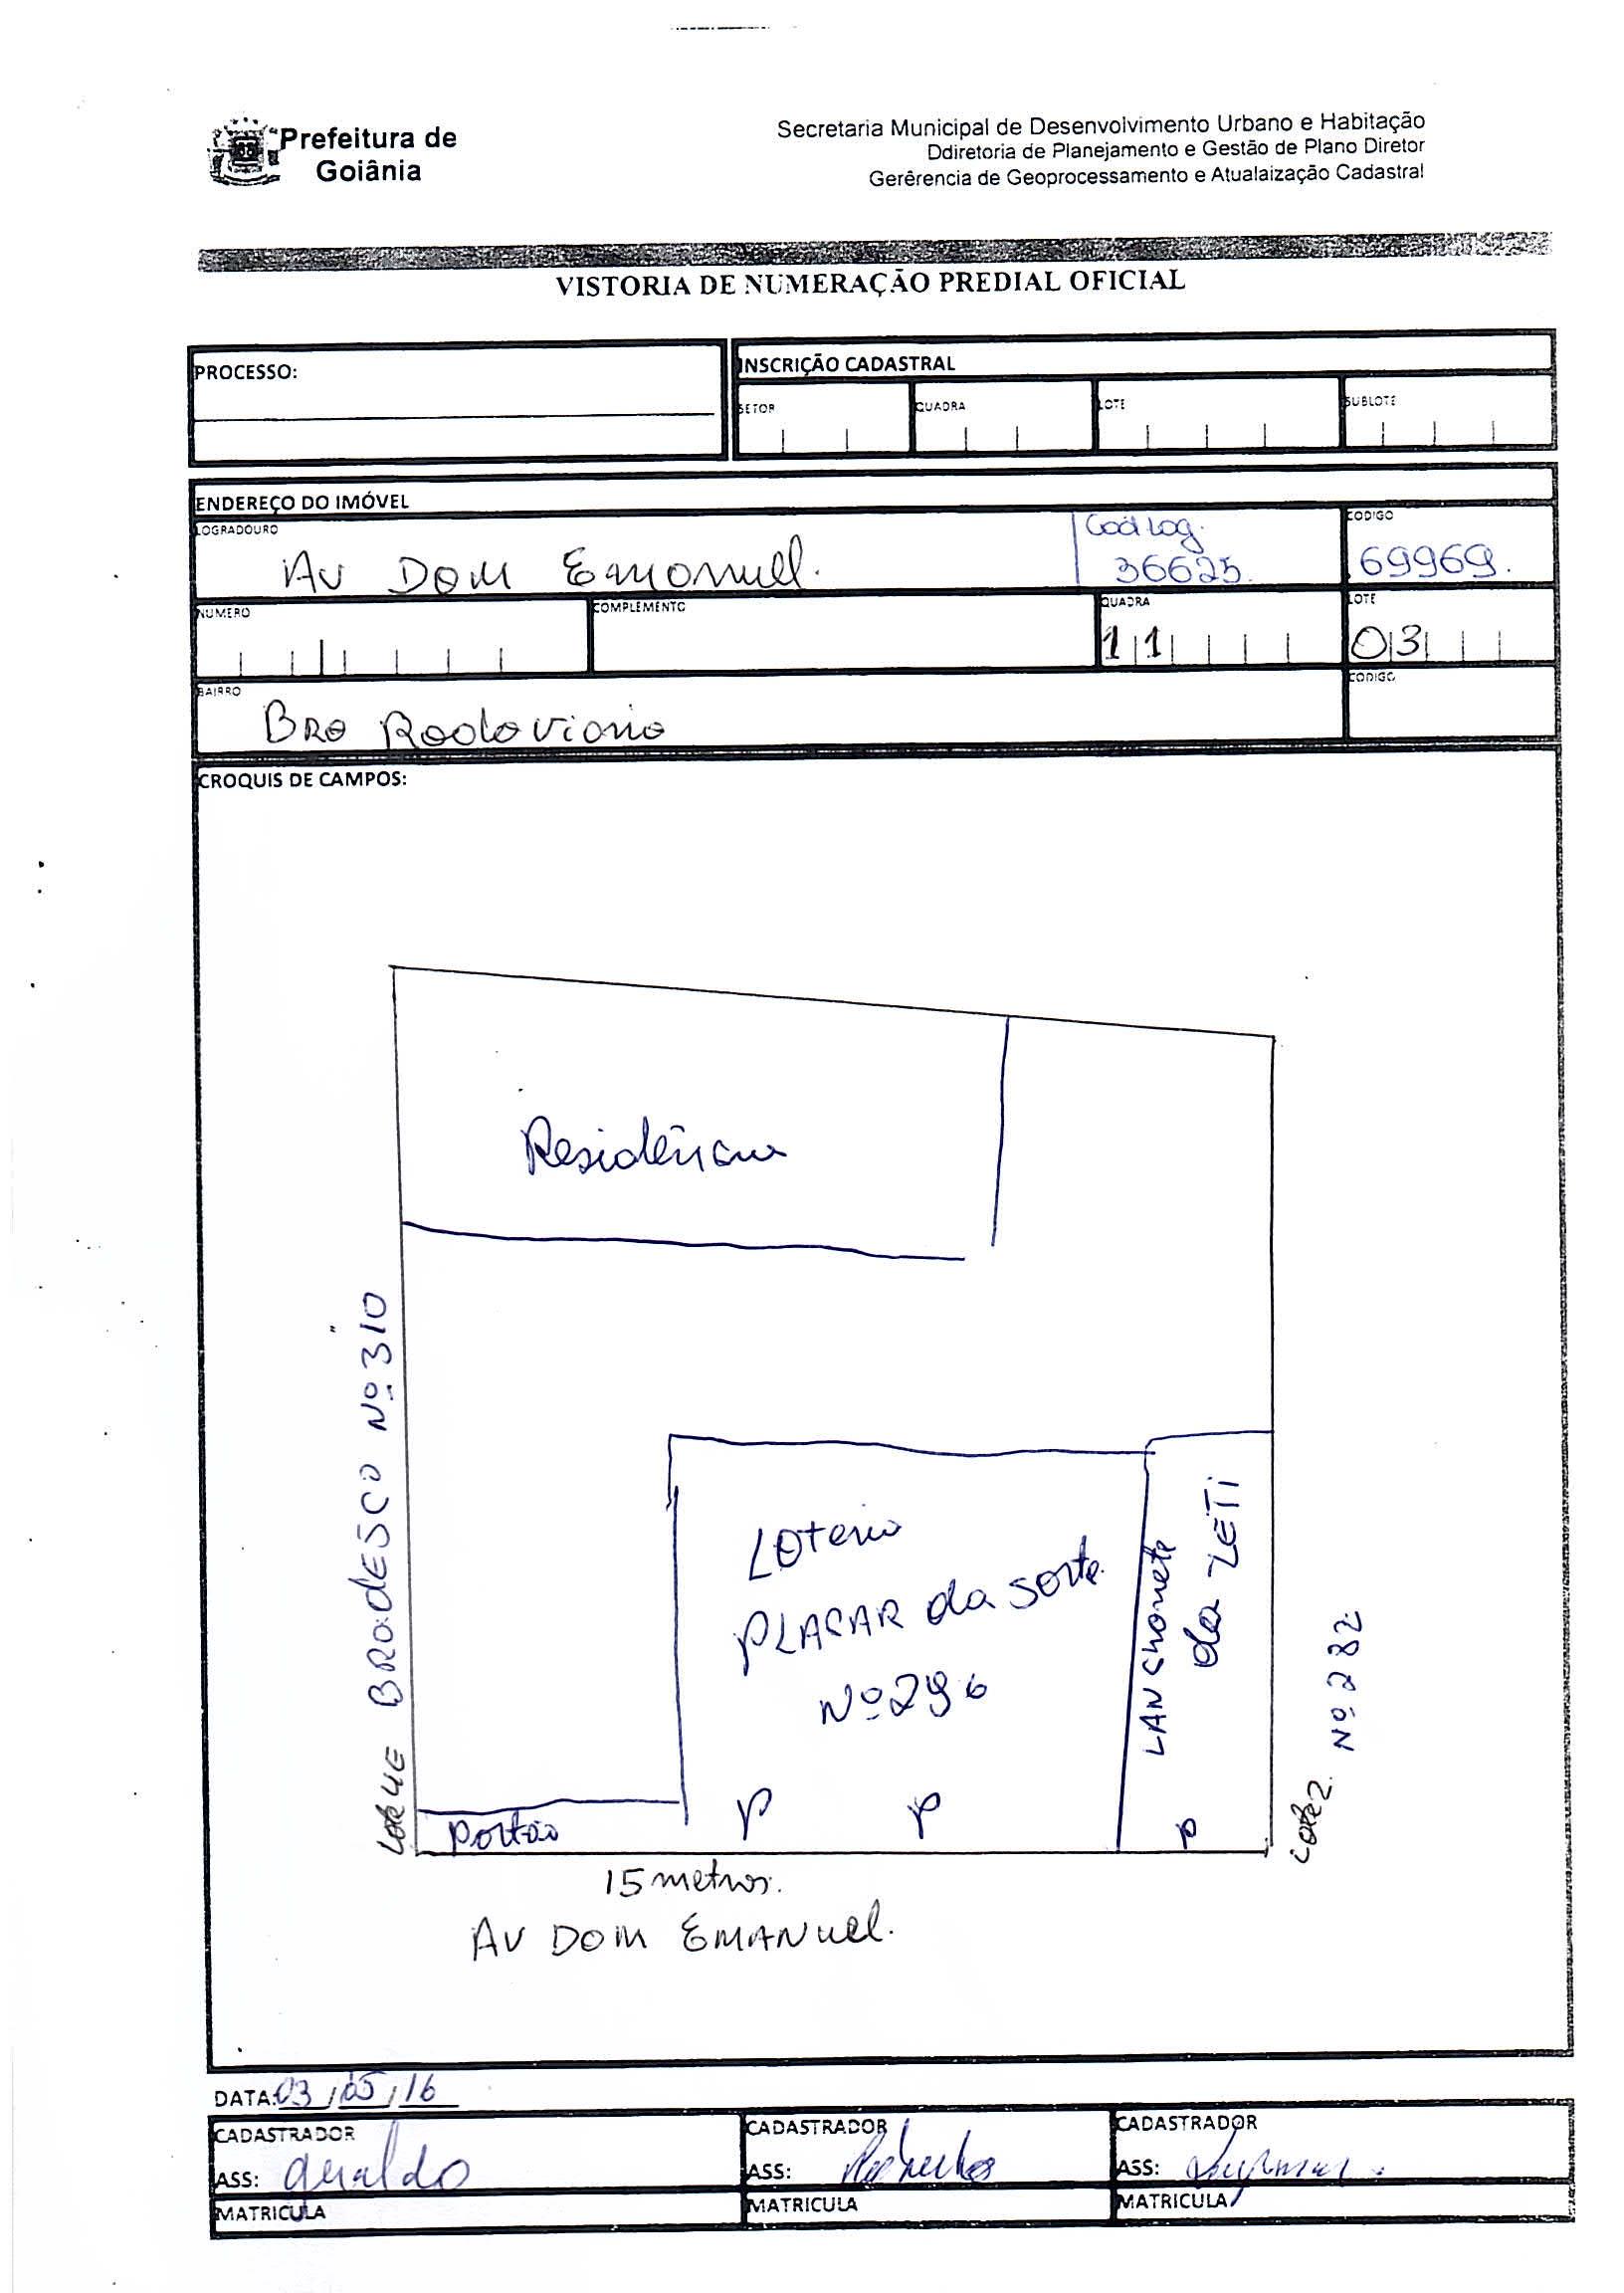 Prefeitura de
Goiânia
Secretaria Municipal de Desenvolvimento Urbano e Habitação
Ddiretoria de Planejamento e Gestão de Plano Diretor
Gerêrencia de Geoprocessamento e Atualaização Cadastral
VISTORIA DE NUMERAÇÃO PREDIAL OFICIAL
PROCESSO:
INSCRIÇÃO CADASTRAL
SETOR QUADRA LOTE SUBLOTE
ENDEREÇO DO IMÓVEL
LOGRADOURO Cod Log. CODIGO
Av Dom Emanuell. 36625. 69969.
NUMERO COMPLEMENTO QUADRA LOTE
11 03
BAIRRO CODIGO
BRO Rodoviario
CROQUIS DE CAMPOS:
Residência
LOTE 4 BRADESCO Nº 310
Loteria
PLACAR da sorte
Nº 296
LANCHONETE
da LETI
Lote 2. Nº 282
P P P
Portão
15 metros.
AV DOM EMANUEL.
DATA: 03/05/16
CADASTRADOR CADASTRADOR CADASTRADOR
ASS: Geraldo ASS: ASS:
MATRICULA MATRICULA MATRICULA